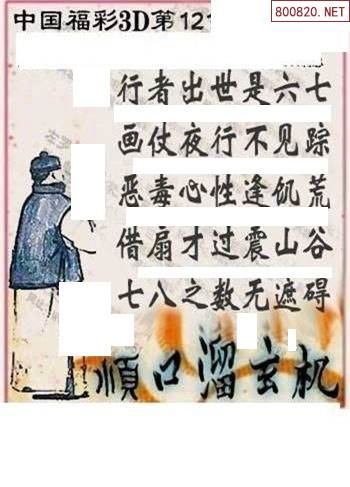 800820.NET
中国福彩3D第121
行者出世是六七
画仗夜行不见踪
恶毒心性逢饥荒
借扇才过震山谷
七八之数无遮碍
顺口溜玄机